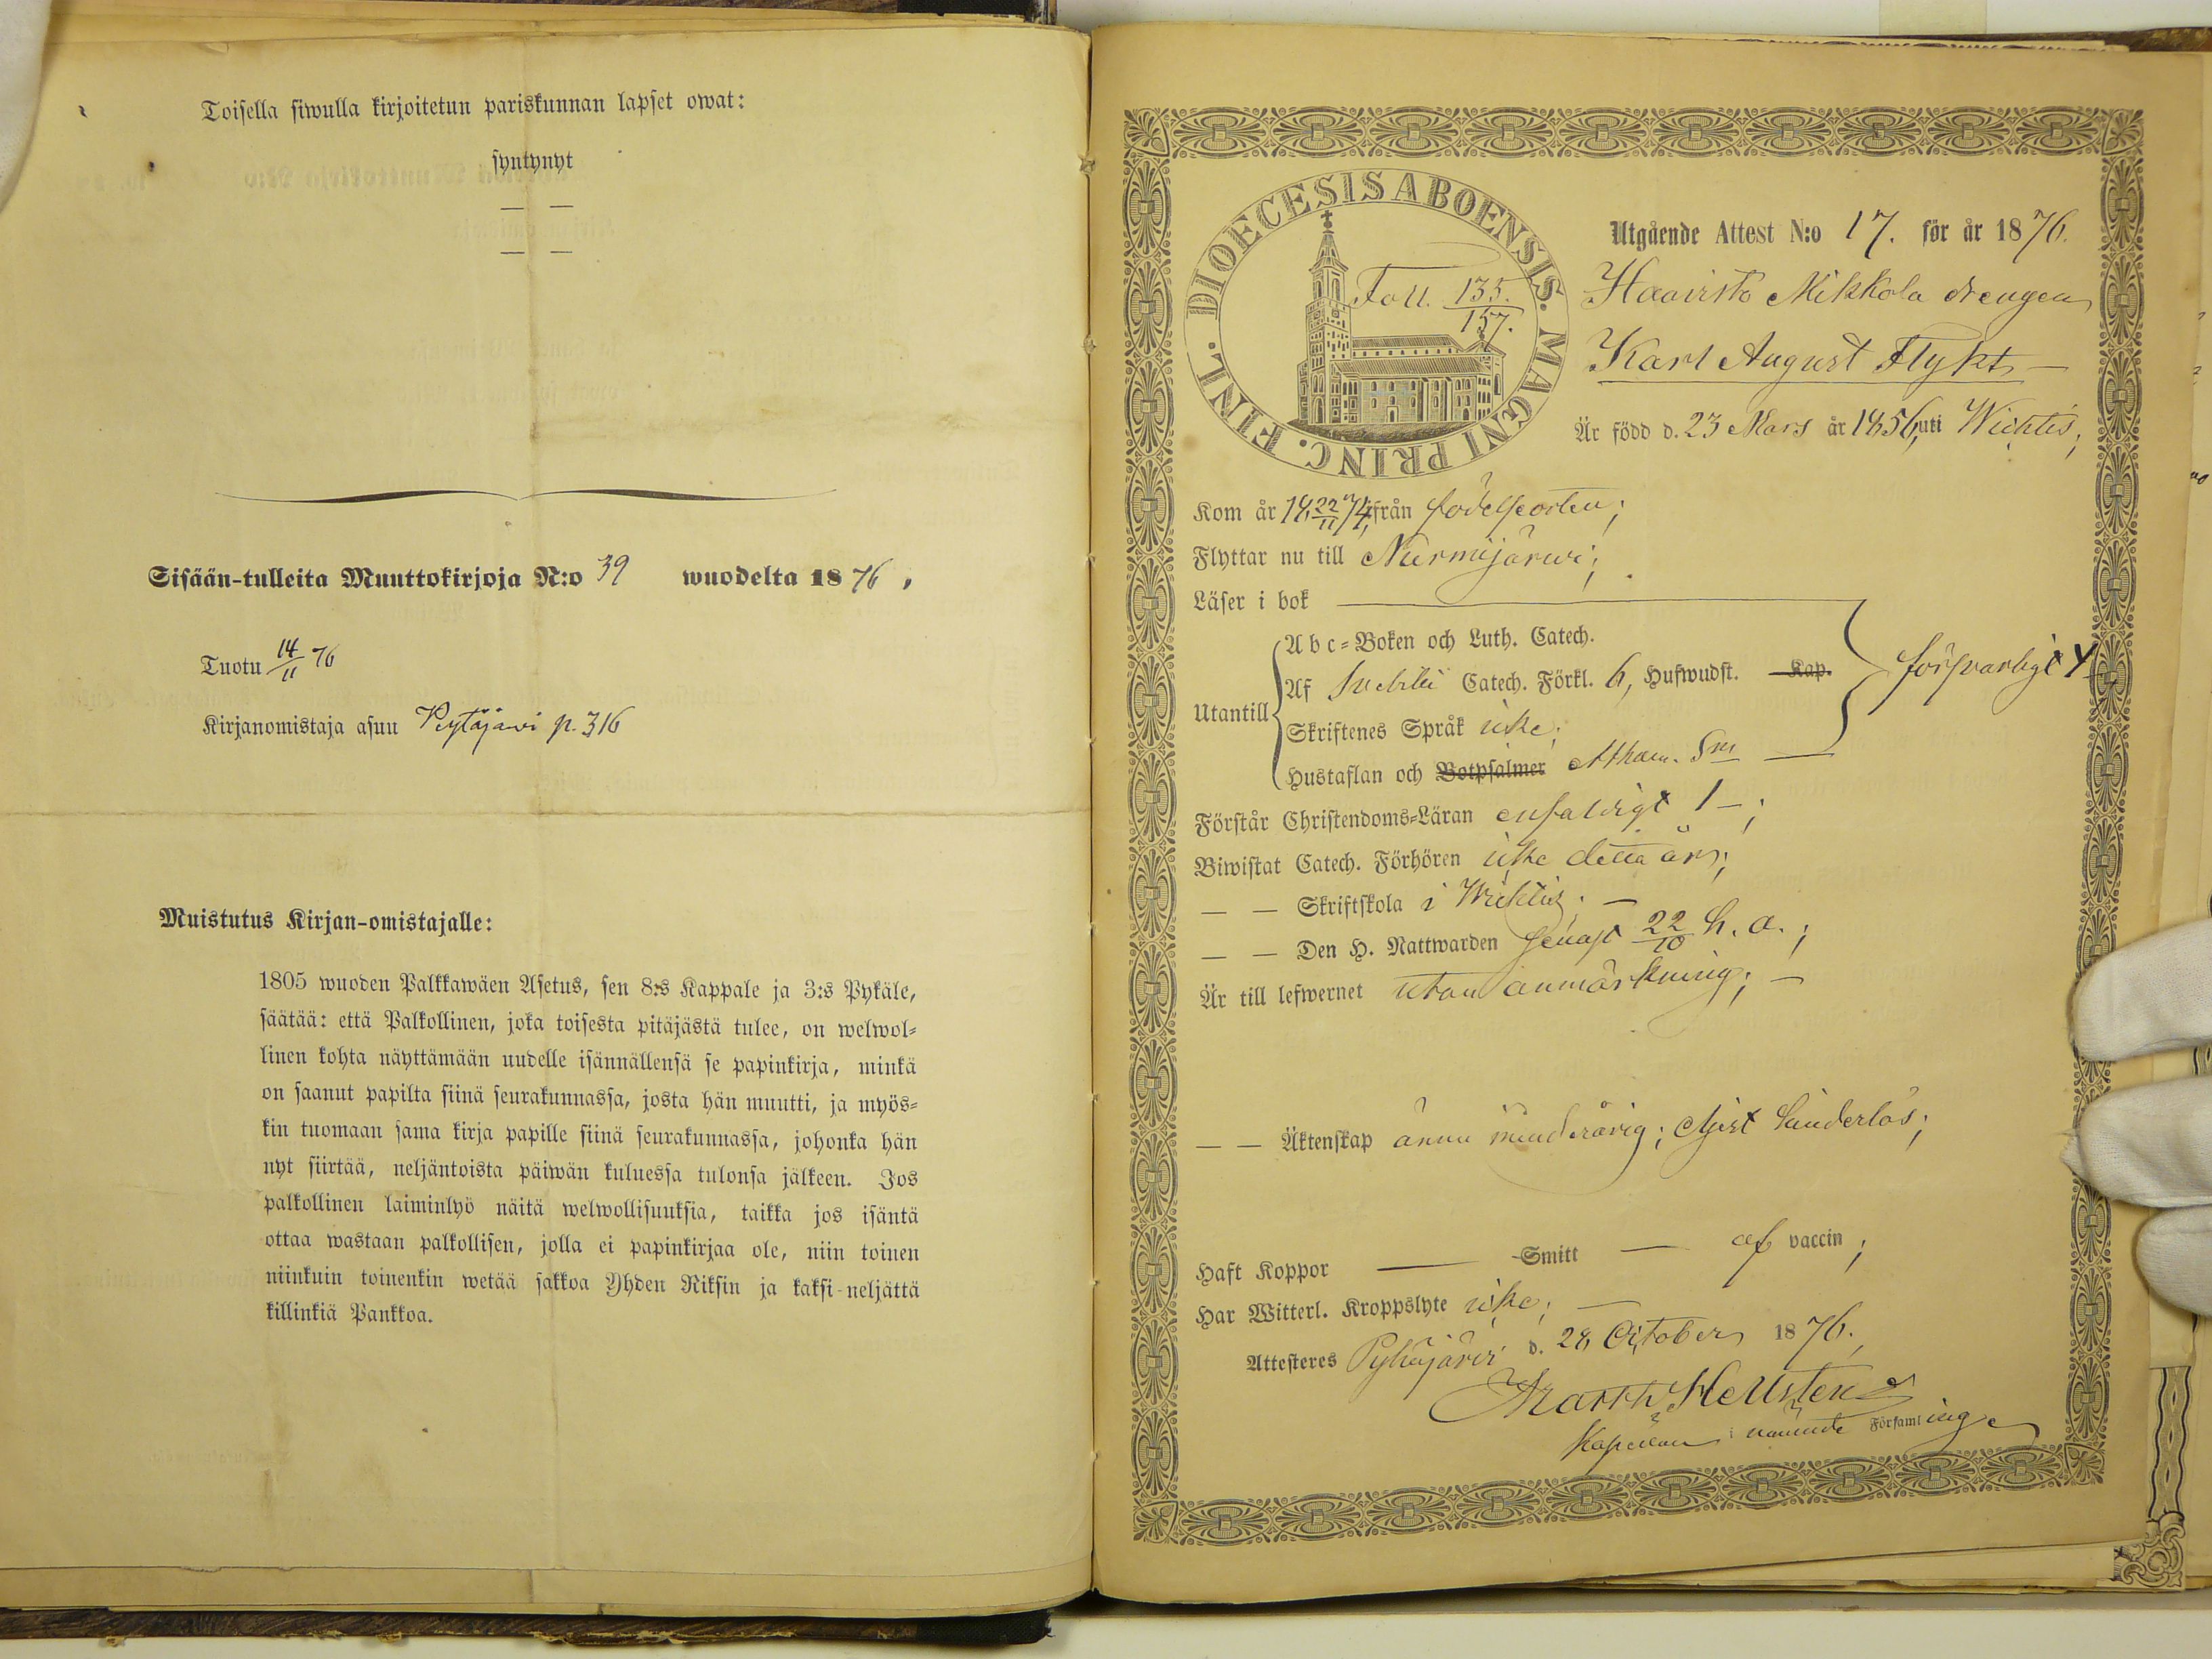 Toisella siwulla kirjoitetun pariskunnan lapset owat:
syntynyt
— —
— —
Sisään-tulleita Muuttokirjoja N:o 39 wuodelta 1876,
Tuotu 14/11 76
Kirjanomistaja asuu Kytäjärvi p. 316
Muistutus Kirjan-omistajalle:
1805 wuoden Palkkawäen Asetus, sen 8:s Kappale ja 3:s Pykäle,
säätää: että Palkollinen, joka toisesta pitäjästä tulee, on welwol-
linen kohta näyttämään uudelle isännällensä se papinkirja, minkä
on saanut papilta siinä seurakunnassa, josta hän muutti, ja myös-
kin tuomaan sama kirja papille siinä seurakunnassa, johonka hän
nyt siirtää, neljäntoista päiwän kuluessa tulonsa jälkeen. Jos
palkollinen laiminlyö näitä welwollisuuksia, taikka jos isäntä
ottaa wastaan palkollisen, jolla ei papinkirjaa ole, niin toinen
niinkuin toinenkin wetää sakkoa Yhden Riksin ja kaksi-neljättä
killinkiä Pankkoa.
DIOECESIS ABOENSIS. MAGNI PRINC. FINL.
Foll. 135./157.
Utgående Attest N:o 17. för år 1876.
Haavisto Mikkola drengen
Karl August Flykt —
Är född d. 23 Mars år 1856, uti Wichtis;
Kom år 18 22/11 74, ifrån födelseorten;
Flyttar nu till Nurmijärvi;
Läser i bok —
Utantill
Abc-Boken och Luth. Catech.
Af Svebilii Catech. Förkl. 6, Hufwudst. — Kap.
försvarligt
Skriftenes Språk icke;
Hustaflan och Botpsalmer Athan. Sm —
Förstår Christendoms-Läran enfaldigt 1 —;
Biwistat Catech. Förhören icke detta år;
— — Skriftskola i Wichtis; —
— — Den H. Nattwarden senast 22/10 h. a.;
Är till lefwernet utan anmärkning; —
— — Äktenskap ännu minderårig; hinderlös;
Haft Koppor — Smitt — af vaccin;
Har Witterl. Kroppslyte icke; —
Attesteres Pyhäjärvi d. 28 October 1876.
Hellsten
Kapellan i nämnde Församling